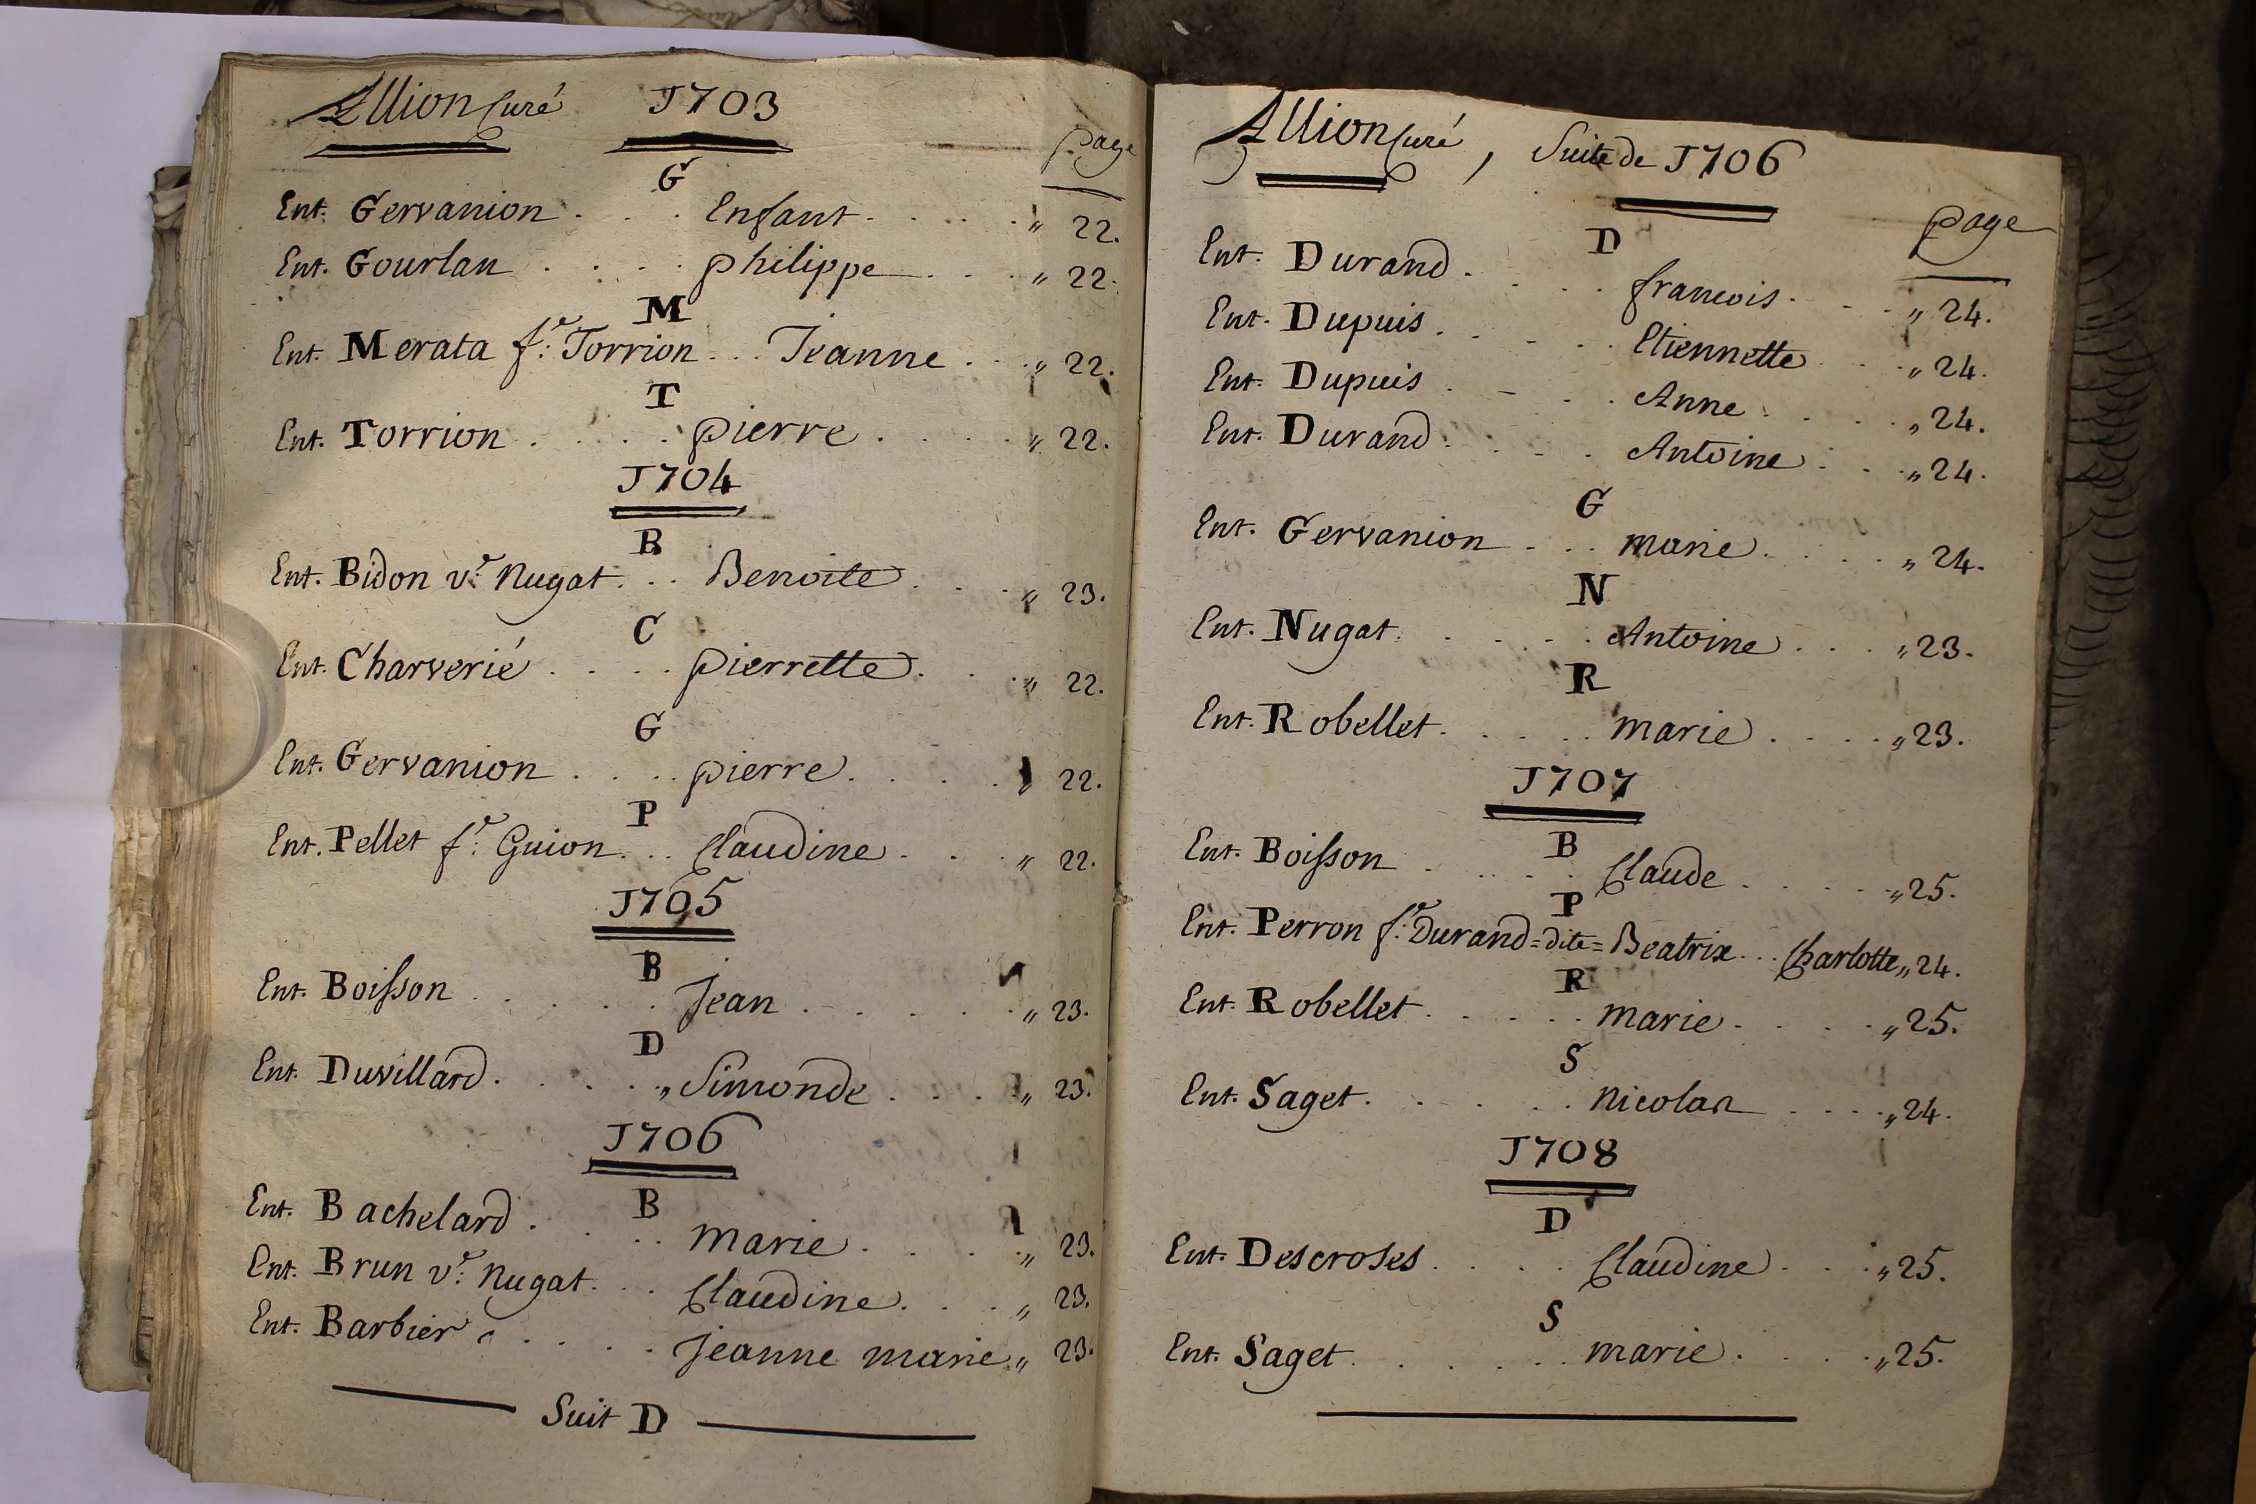 Allion Curé 1703
page
G
Ent. Gervanion . . . Enfant . . . . . „ 22.
Ent. Gourlan . . . . philippe . . . „ 22.
M
Ent. Merata f.e Torrion . . . Jeanne . . „ 22.
T
Ent. Torrion . . . . pierre . . . . „ 22.
1704
B
Ent. Bidon v.e Nugat . . . Benoite . . . „ 23.
C
Ent. Charverié . . . . pierrette . . . „ 22.
G
Ent. Gervanion . . . . pierre . . . . „ 22.
P
Ent. Pellet f.e Guion . . . Claudine . . . „ 22.
1705
B
Ent. Boisson . . . . . Jean . . . . . „ 23.
D
Ent. Duvillard . . . . „ Simonde . . . . „ 23.
1706
B
Ent. Bachelard . . . . marie . . . . „ 23.
Ent. Brun v.e Nugat . . . Claudine . . . „ 23.
Ent. Barbier . . . . . Jeanne marie „ 23.
Suit D
Allion Curé, Suite de 1706
page
D
Ent. Durand . . . . francois . . . „ 24.
Ent. Dupuis . . . . Etiennette . . . „ 24.
Ent. Dupuis . . . . Anne . . . . . „ 24.
Ent. Durand . . . . Antoine . . . „ 24.
G
Ent. Gervanion . . . marie . . . . „ 24.
N
Ent. Nugat . . . . . Antoine . . . „ 23.
R
Ent. Robellet . . . . . marie . . . . „ 23.
1707
B
Ent. Boisson . . . . . Claude . . . . . „ 25.
P
Ent. Perron f.e Durand = dite = Beatrix . . . Charlotte „ 24.
R
Ent. Robellet . . . . . marie . . . . „ 25.
S
Ent. Saget . . . . . Nicolas . . . . „ 24.
1708
D
Ent. Descroses . . . . Claudine . . . „ 25.
S
Ent. Saget . . . . . marie . . . . „ 25.